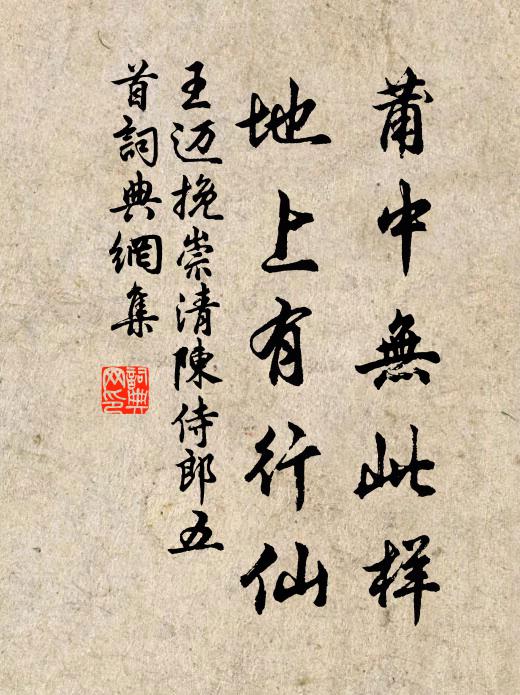 莆中無此样
地上有行仙
王迈挽崇清陳侍郎五
首詞典網集
詞典
网印